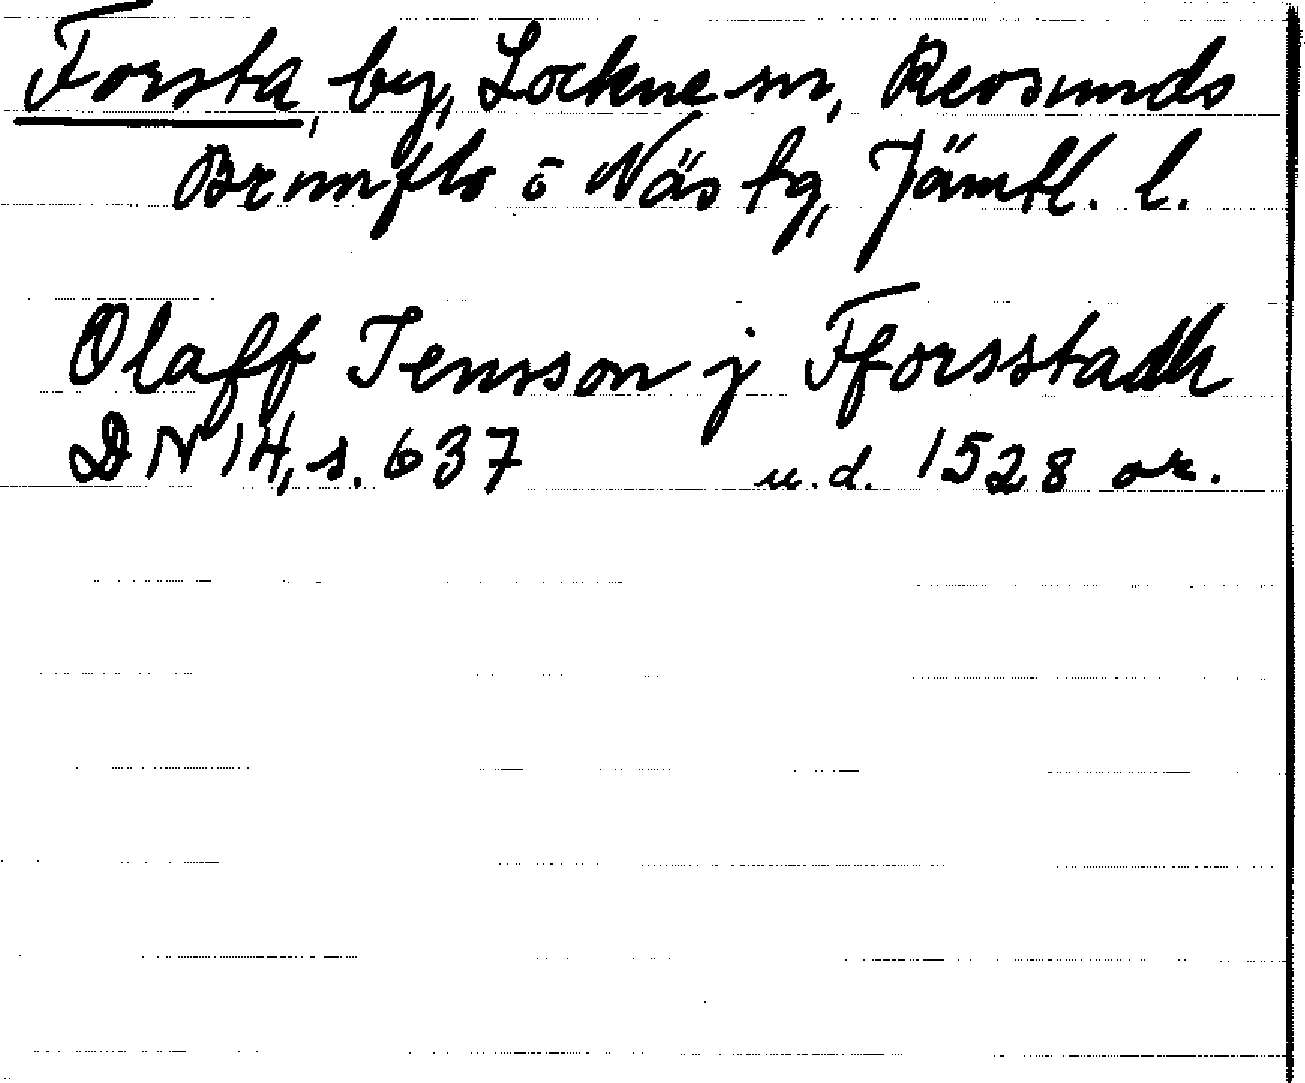 Forsta, by, Lockne sn, Revsunds
Brunflo o Näs tg, Jämtl. l.
Olaff Jensson j Fforsstadh
DN 14, s. 637 u.d. 1528 or.